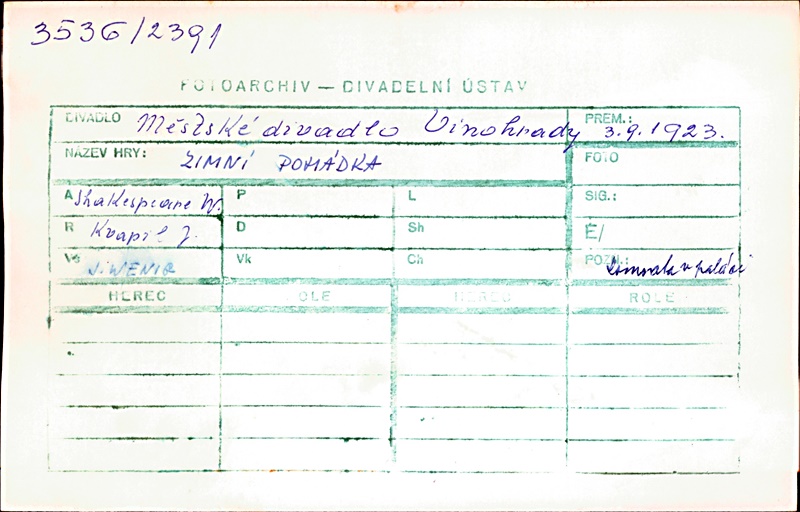 3536/2391
FOTOARCHIV — DIVADELNÍ ÚSTAV
DIVADLO Městské divadlo Vinohrady PREM.: 3.9.1923.
NÁZEV HRY: ZIMNÍ POHÁDKA FOTO
A Shakespeare W. P L SIG.:
R Kvapil J. D Sh É/
Vs J. WENIG Vk Ch POZN.: v paláci
HEREC OLE HEREC ROLE